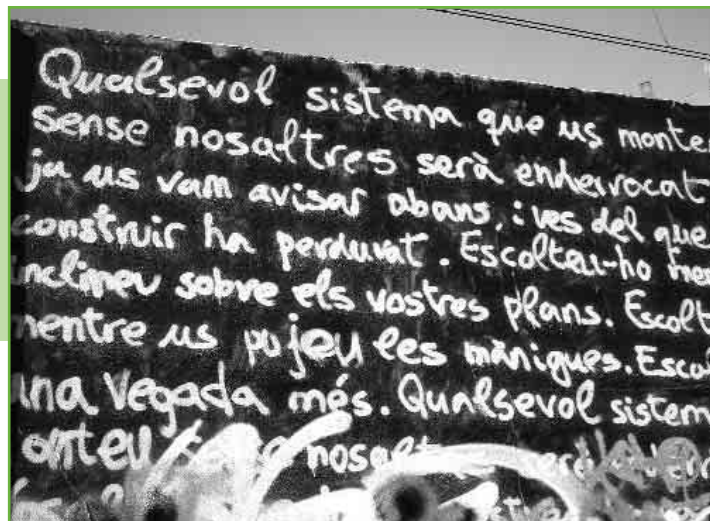 Qualsevol sistema que us monte
sense nosaltres serà enderrocat
ja us vam avisar abans, i res del que
construir ha perdurat. Escolteu-ho men
inclineu sobre els vostres plans. Escolt
mentre us pujeu les mànigues. Escol
una vegada més. Qualsevol sistem
onteu nosalt